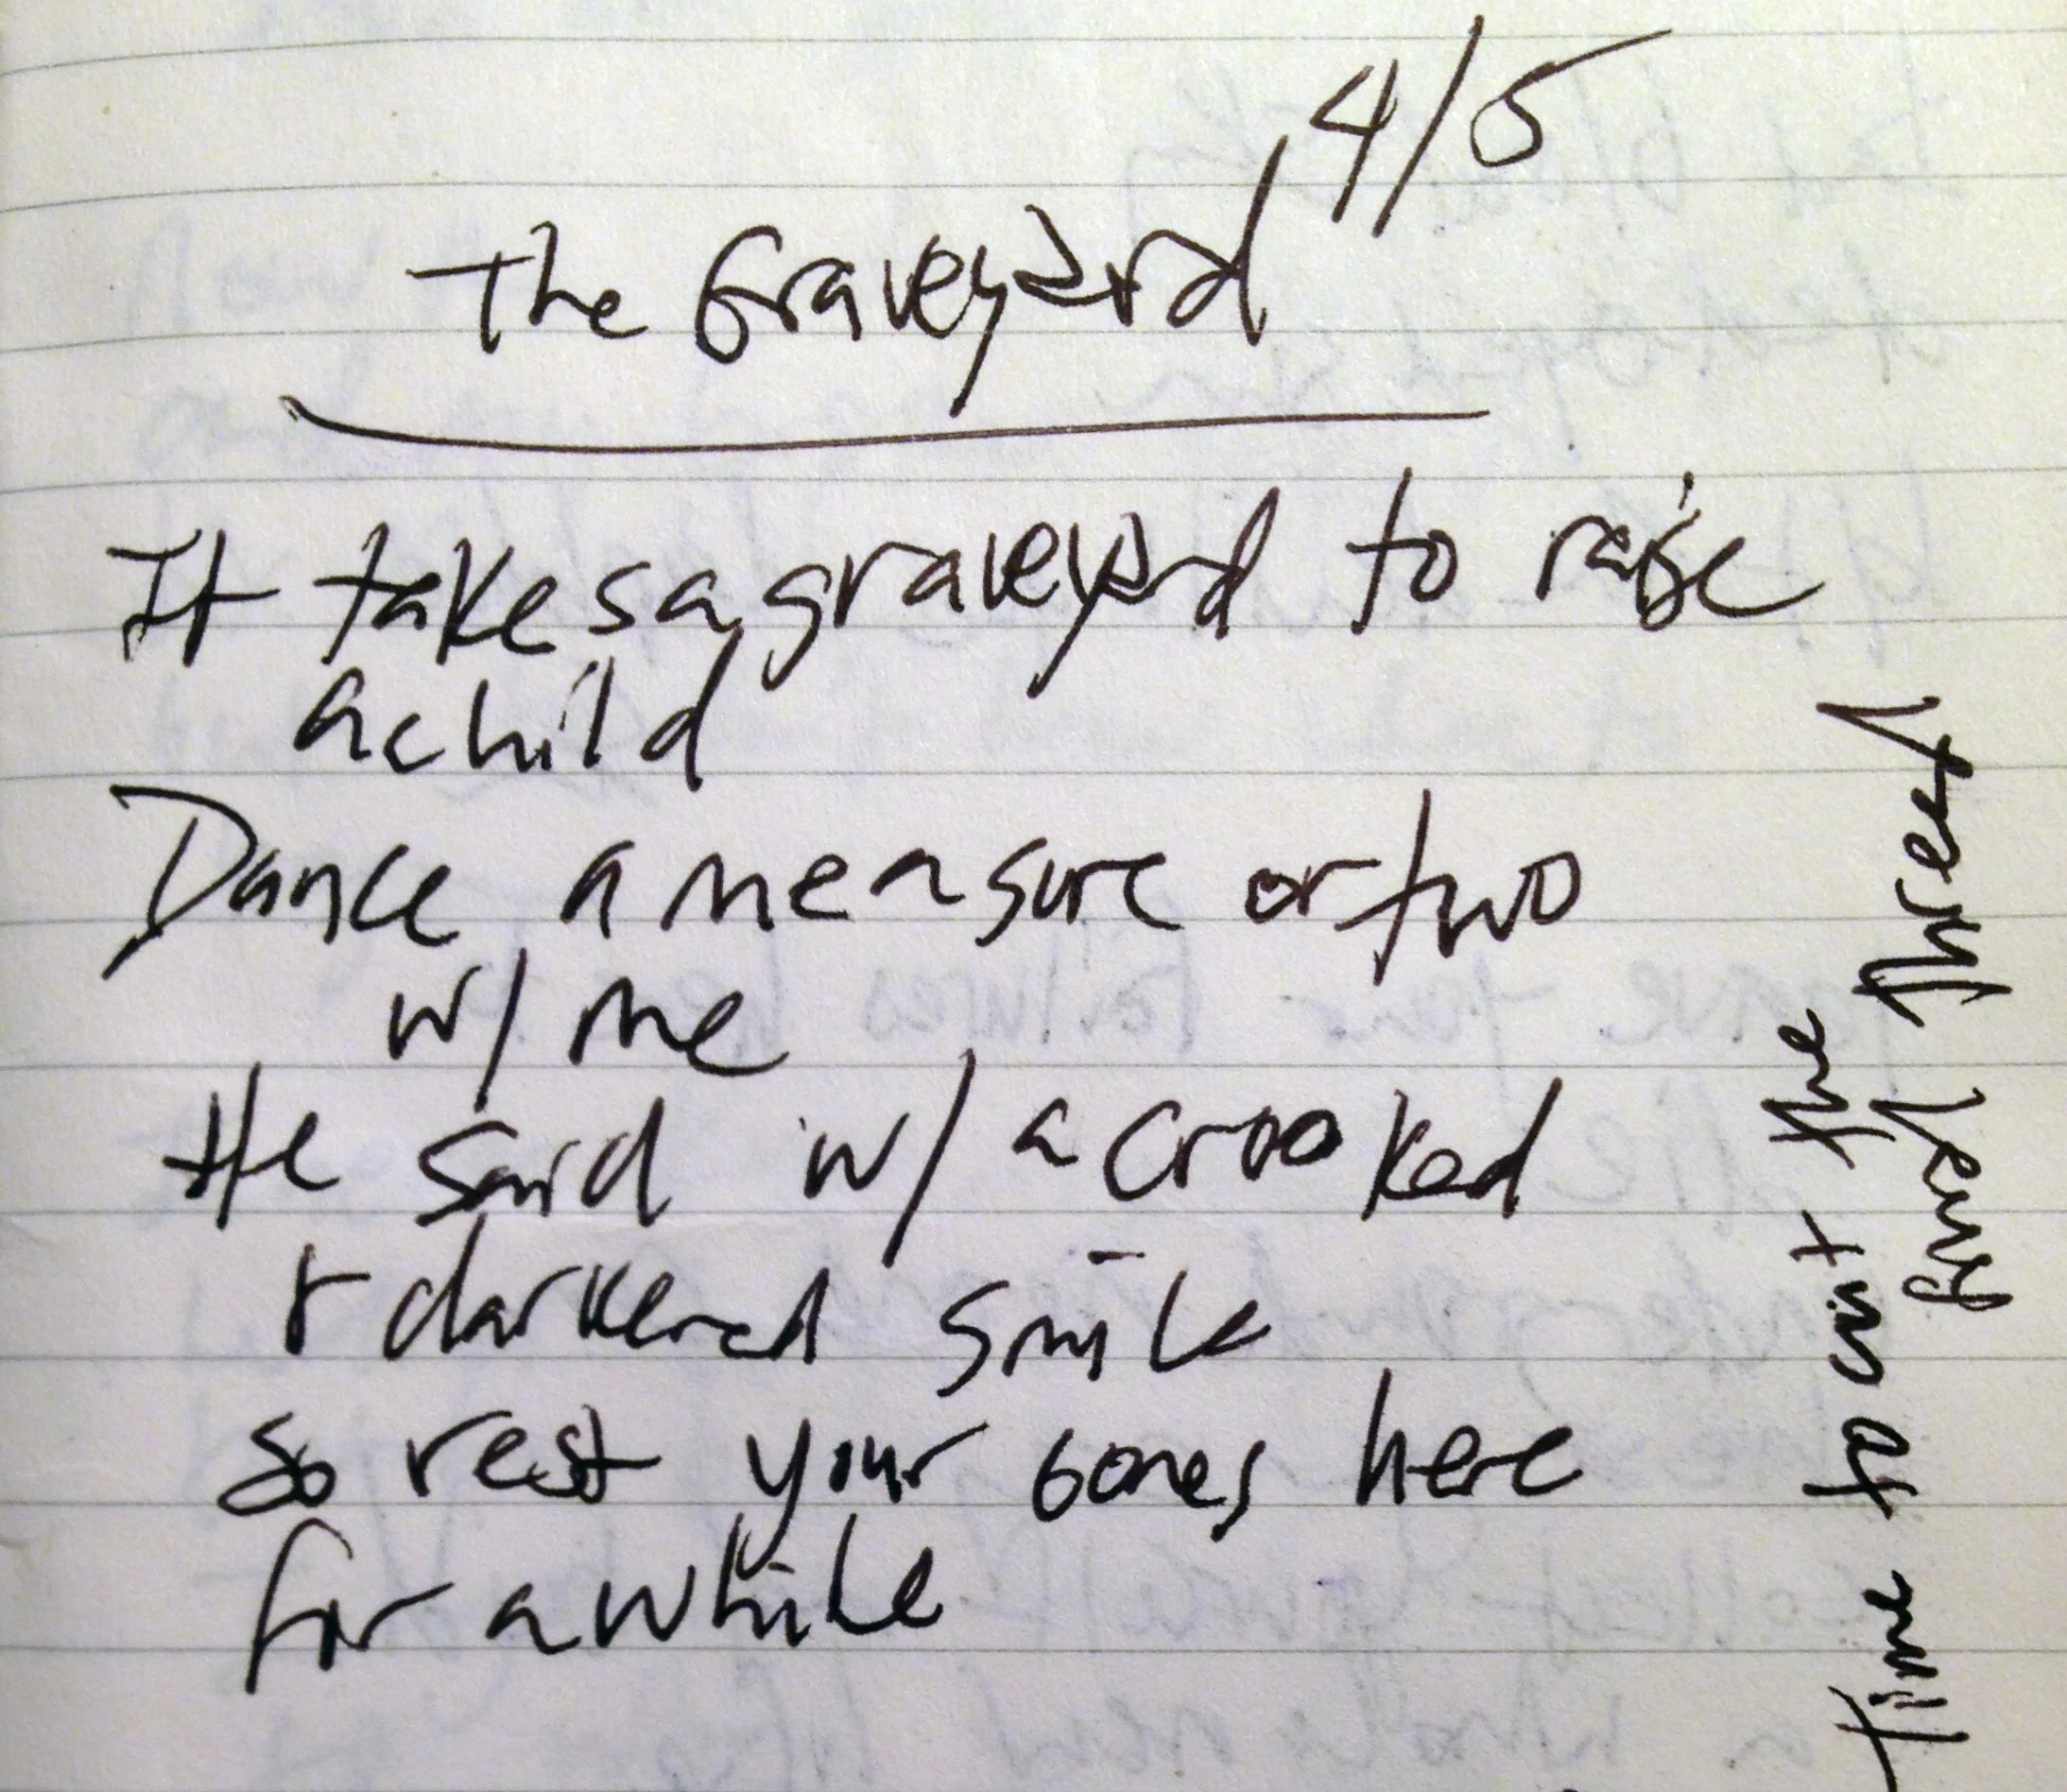 4/5
The Graveyard
It takes a graveyard to raise
a child
Dance a measure or two
w/ me
He said w/ a crooked
+ darkened smile
so rest your bones here
for a while
time to cut the
final thread